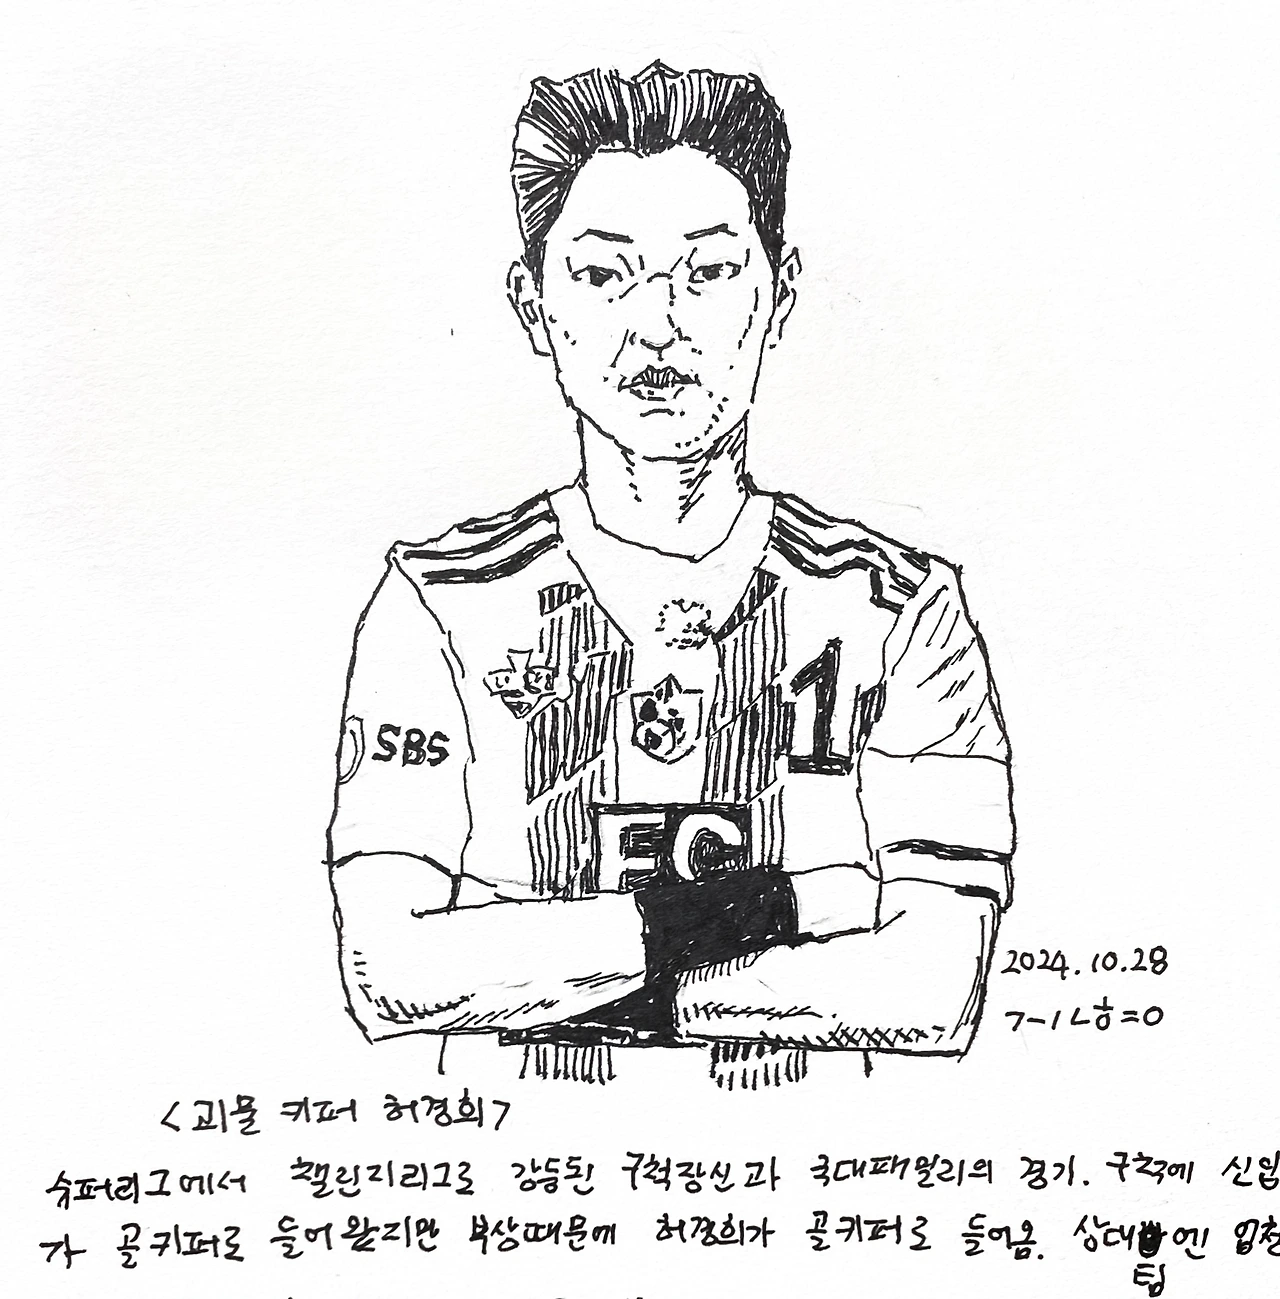 SBS
1
FC
2024.10.28
<괴물 키퍼 허경희>
슈퍼리그에서 챌린지리그로 강등된 구척장신과 국대패밀리의 경기. 구척에 신입
가 골키퍼로 들어왔지만 부상때문에 허경희가 골키퍼로 들어옴. 상대 엔
팀